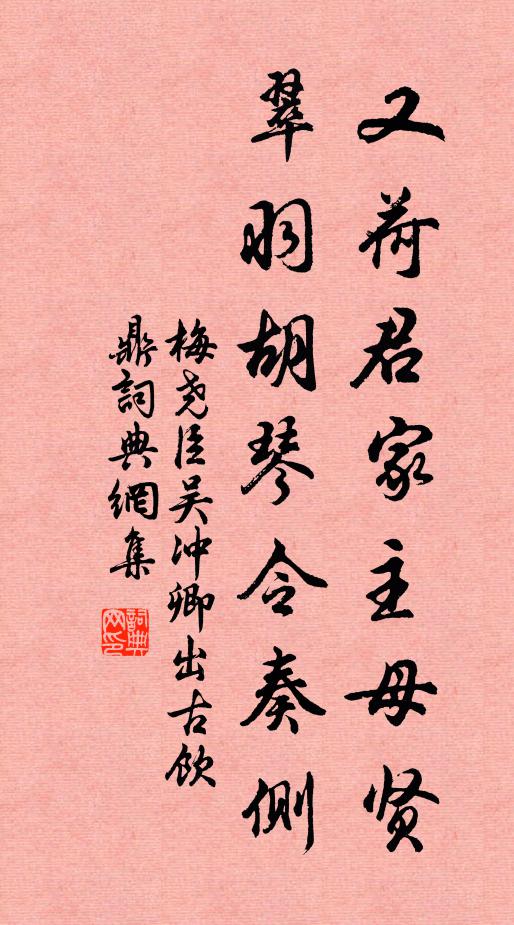 又荷君家主母贤
翠羽胡琴令奏侧
梅尧臣吴冲卿出古饮
鼎詞典網集
詞典网印